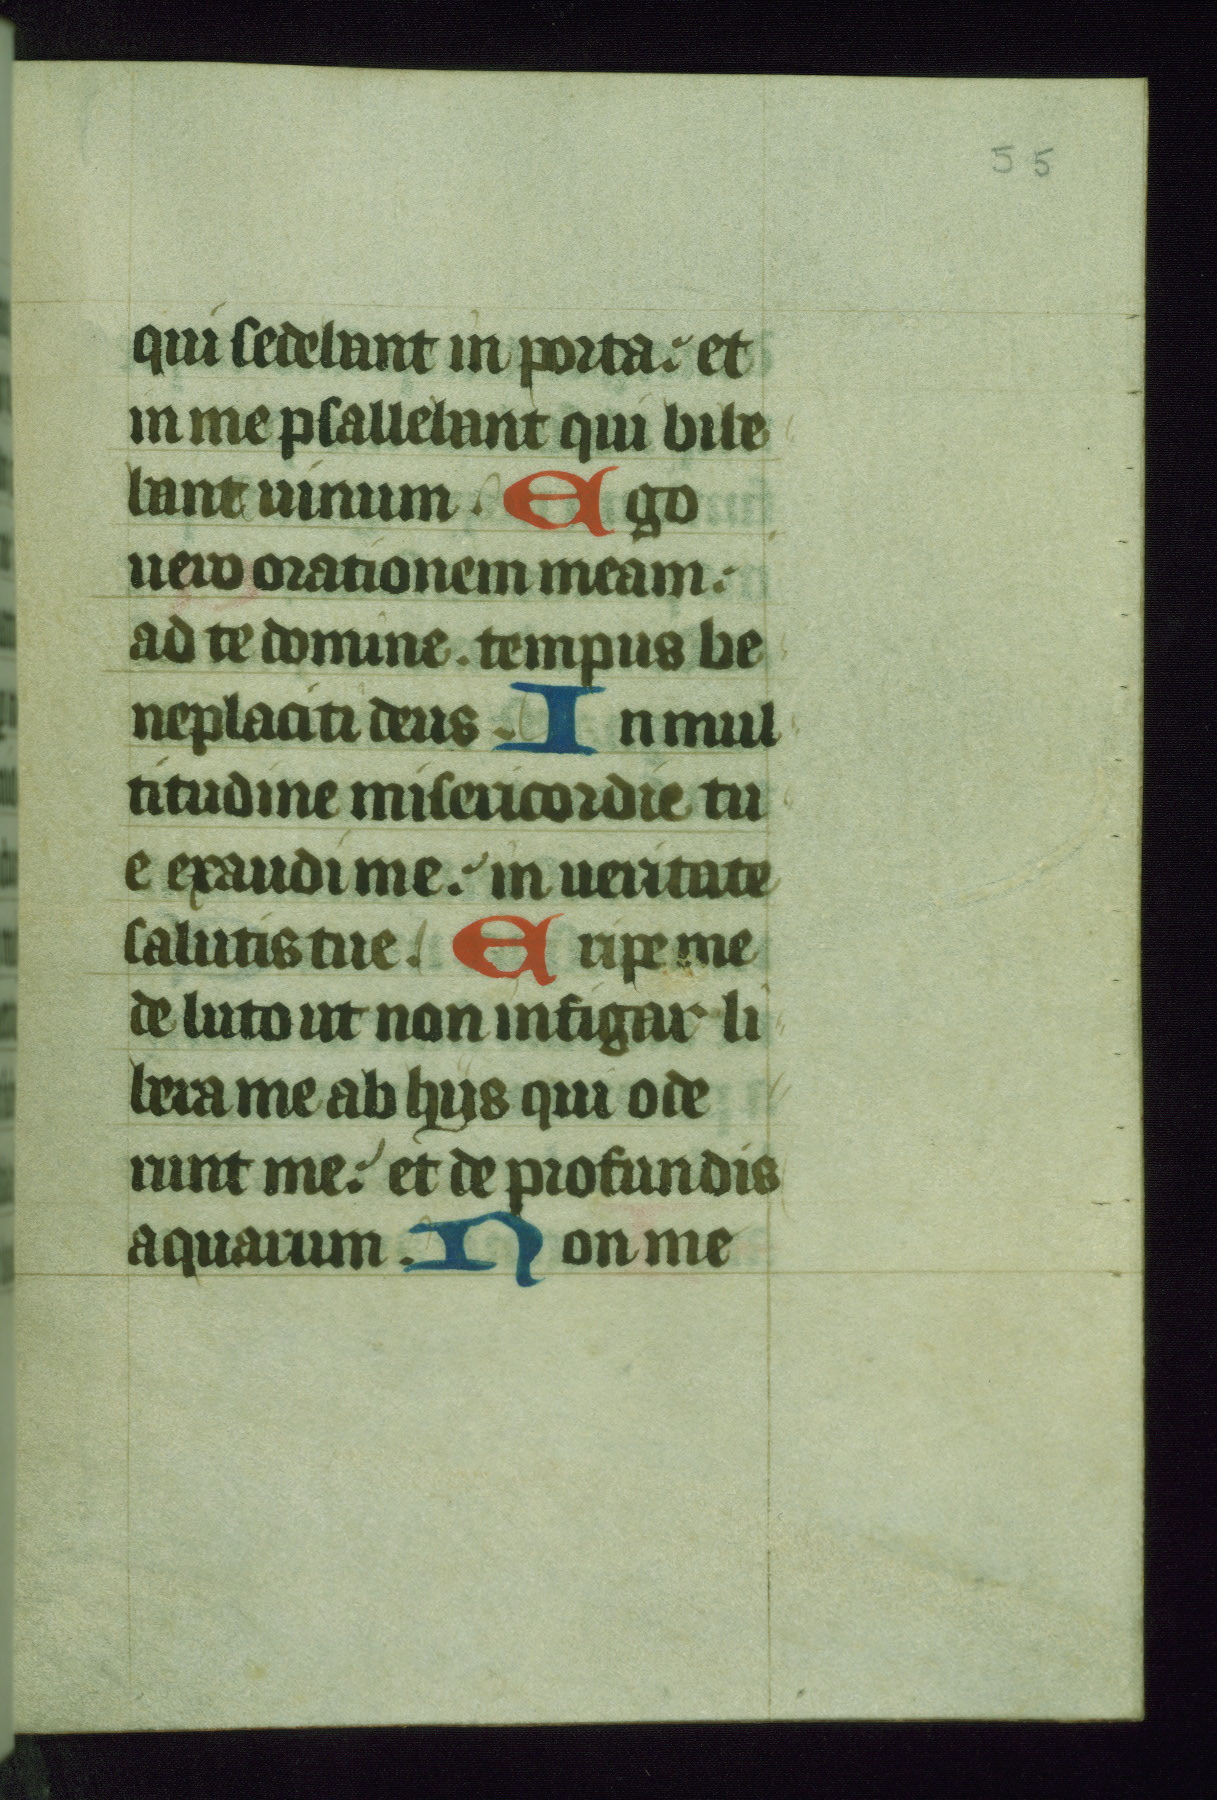 55
qui sedebant in porta: et
in me psallebant qui bibe
bant uinum. Ego
uero orationem meam:
ad te domine. tempus be
neplaciti deus. In mul
titudine misericordie tu
e exaudi me: in ueritate
salutis tue. Eripe me
de luto ut non infigar li
bera me ab hijs qui ode
runt me: et de profundis
aquarum. Non me